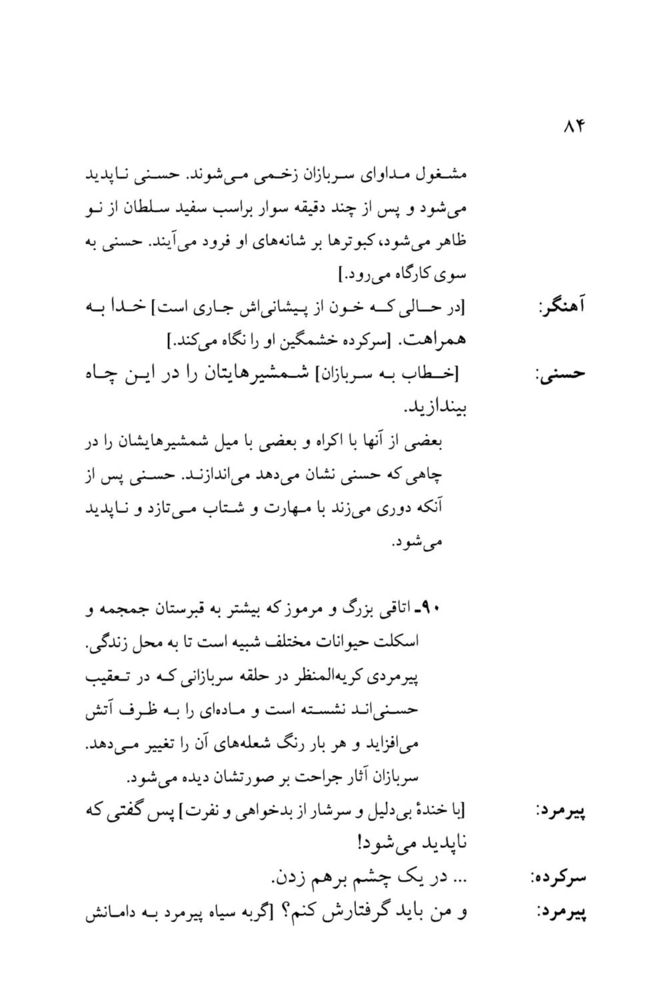 ۸۴
مشغول مداوای سربازان زخمی می‌شوند. حسنی ناپدید
می‌شود و پس از چند دقیقه سوار براسب سفید سلطان از نو
ظاهر می‌شود، کبوترها بر شانه‌های او فرود می‌آیند. حسنی به
سوی کارگاه می‌رود.]
آهنگر: [در حالی که خون از پیشانی‌اش جاری است] خدا به
همراهت. [سرکرده خشمگین او را نگاه می‌کند.]
حسنی: [خطاب به سربازان] شمشیرهایتان را در این چاه
بیندازید.
بعضی از آنها با اکراه و بعضی با میل شمشیرهایشان را در
چاهی که حسنی نشان می‌دهد می‌اندازند. حسنی پس از
آنکه دوری می‌زند با مهارت و شتاب می‌تازد و ناپدید
می‌شود.
۹۰ـ اتاقی بزرگ و مرموز که بیشتر به قبرستان جمجمه و
اسکلت حیوانات مختلف شبیه است تا به محل زندگی.
پیرمردی کریه‌المنظر در حلقه سربازانی که در تعقیب
حسنی‌اند نشسته است و ماده‌ای را به ظرف آتش
می‌افزاید و هر بار رنگ شعله‌های آن را تغییر می‌دهد.
سربازان آثار جراحت بر صورتشان دیده می‌شود.
پیرمرد: [با خندهٔ بی‌دلیل و سرشار از بدخواهی و نفرت] پس گفتی که
ناپدید می‌شود!
سرکرده: ... در یک چشم برهم زدن.
پیرمرد: و من باید گرفتارش کنم؟ [گربه سیاه پیرمرد به دامانش